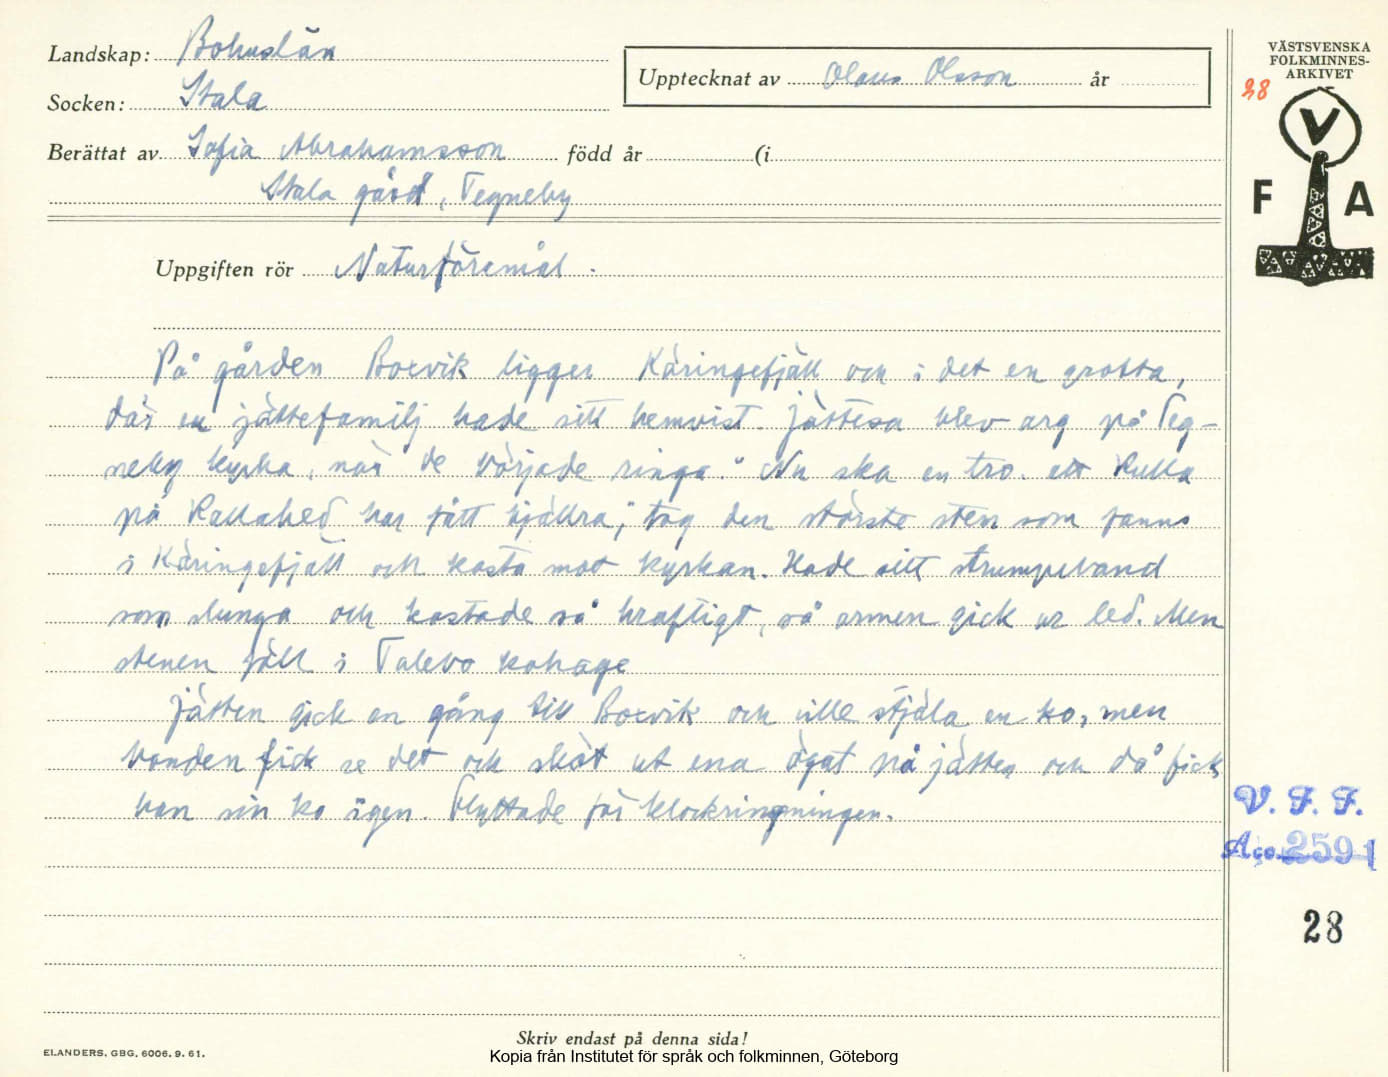 Landskap: Bohuslän
Socken: Stala
Berättat av Sofia Abrahamsson född år (i
Stala gård, Tegneby
Upptecknat av Olaus Olsson år
VÄSTSVENSKA
FOLKMINNES-
ARKIVET
28
V
F A
Uppgiften rör Naturföremål.
På gården Boxvik ligger Käringefjäll och i det en grotta,
där en jättefamilj hade sitt hemvist. Jättesa blev arg på Teg-
neby kyrka, när de började ringa. "Nu ska en tro. att Kulla
på Kallahed har fått bjällra", tog den störste sten som fanns
i Käringefjäll och kasta mot kyrkan. Hade sitt strumpeband
som slunga och kastade så kraftigt, så armen gick ur led. Men
stenen föll i Talebo kohage
Jätten gick en gång till Boxvik och ville stjäla en ko, men
bonden fick se det och sköt ut ena ögat på jätten och då fick
han sin ko igen. Flyttade för klockringningen.
V. F. F.
Acc. 2591
28
Skriv endast på denna sida!
ELANDERS, GBG, 6006. 9. 61.
Kopia från Institutet för språk och folkminnen, Göteborg